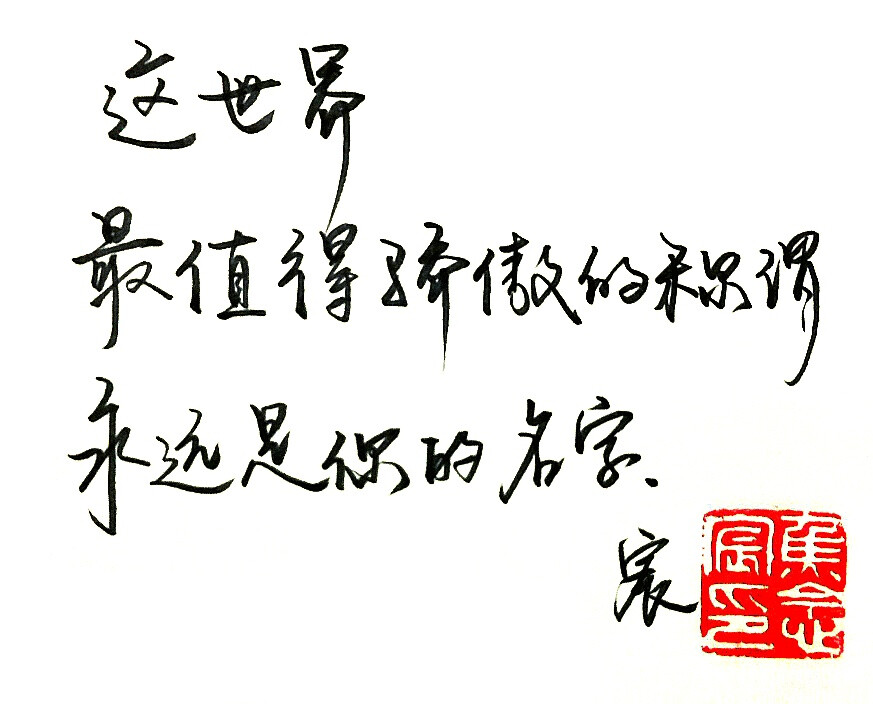 这世界
最值得骄傲的称谓
永远是你的名字.
宸
焦念宸印